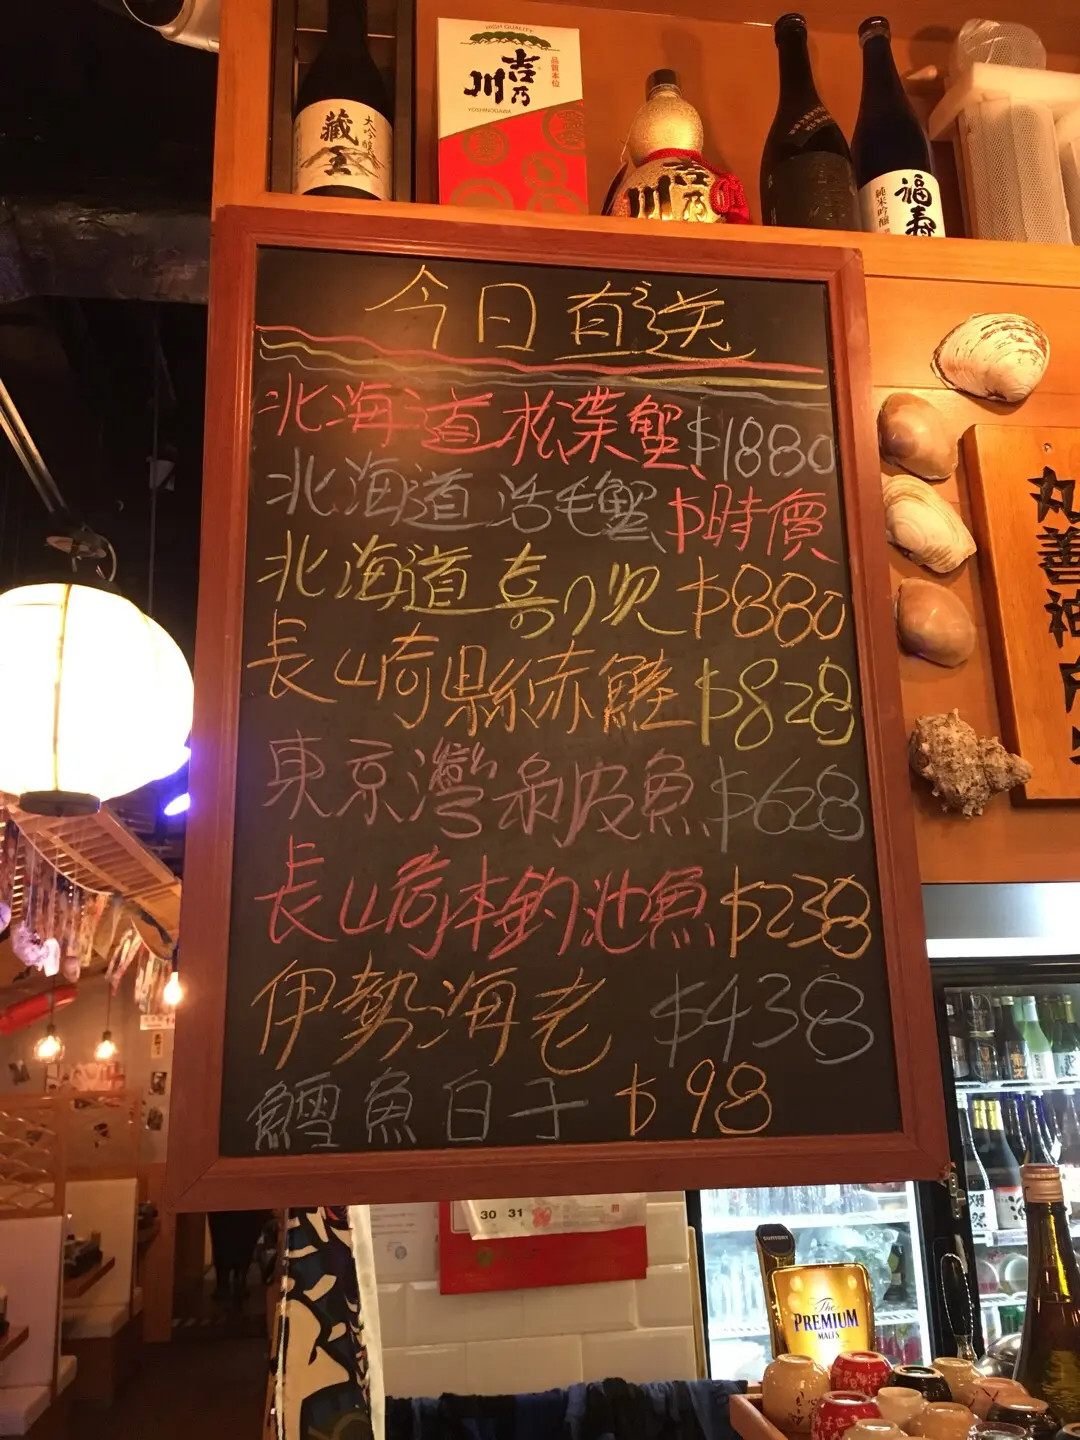 大吟醸
藏王
HIGH QUALITY
品質本位
吉乃川
YOSHINOGAWA
吉乃川
福寿
純米吟醸
今日直送
北海道松葉蟹 $1880
北海道活毛蟹 $時價
北海道喜知次 $880
長崎縣赤鯥 $828
東京灣剥皮魚 $628
長崎本釣池魚 $238
伊勢海老 $438
鱈魚白子 $98
丸善
30 31
SUNTORY
The
PREMIUM
MALT'S